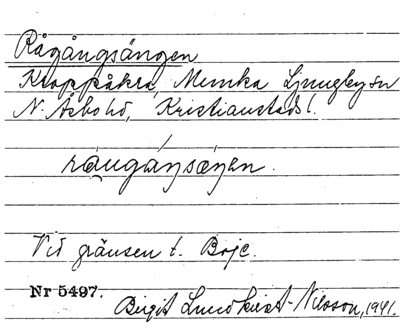 Rågångsängen
Kroppåkra, Munka Ljungby sn
N. Åsbo hd, Kristianstads l.
Vid gränsen t. Boje.
Nr 5497.
Birgit Lundkvist-Nilsson, 1941.